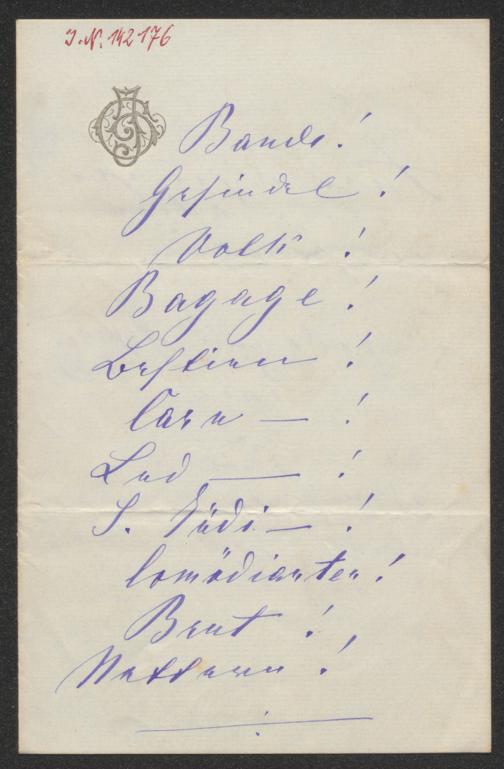 J.N. 142176
Bande!
Gesindel!
Volk!
Bagage!
Bestien!
Can—!
Lud—!
S. Südi—!
Comödianten!
Brut!
Nattern!